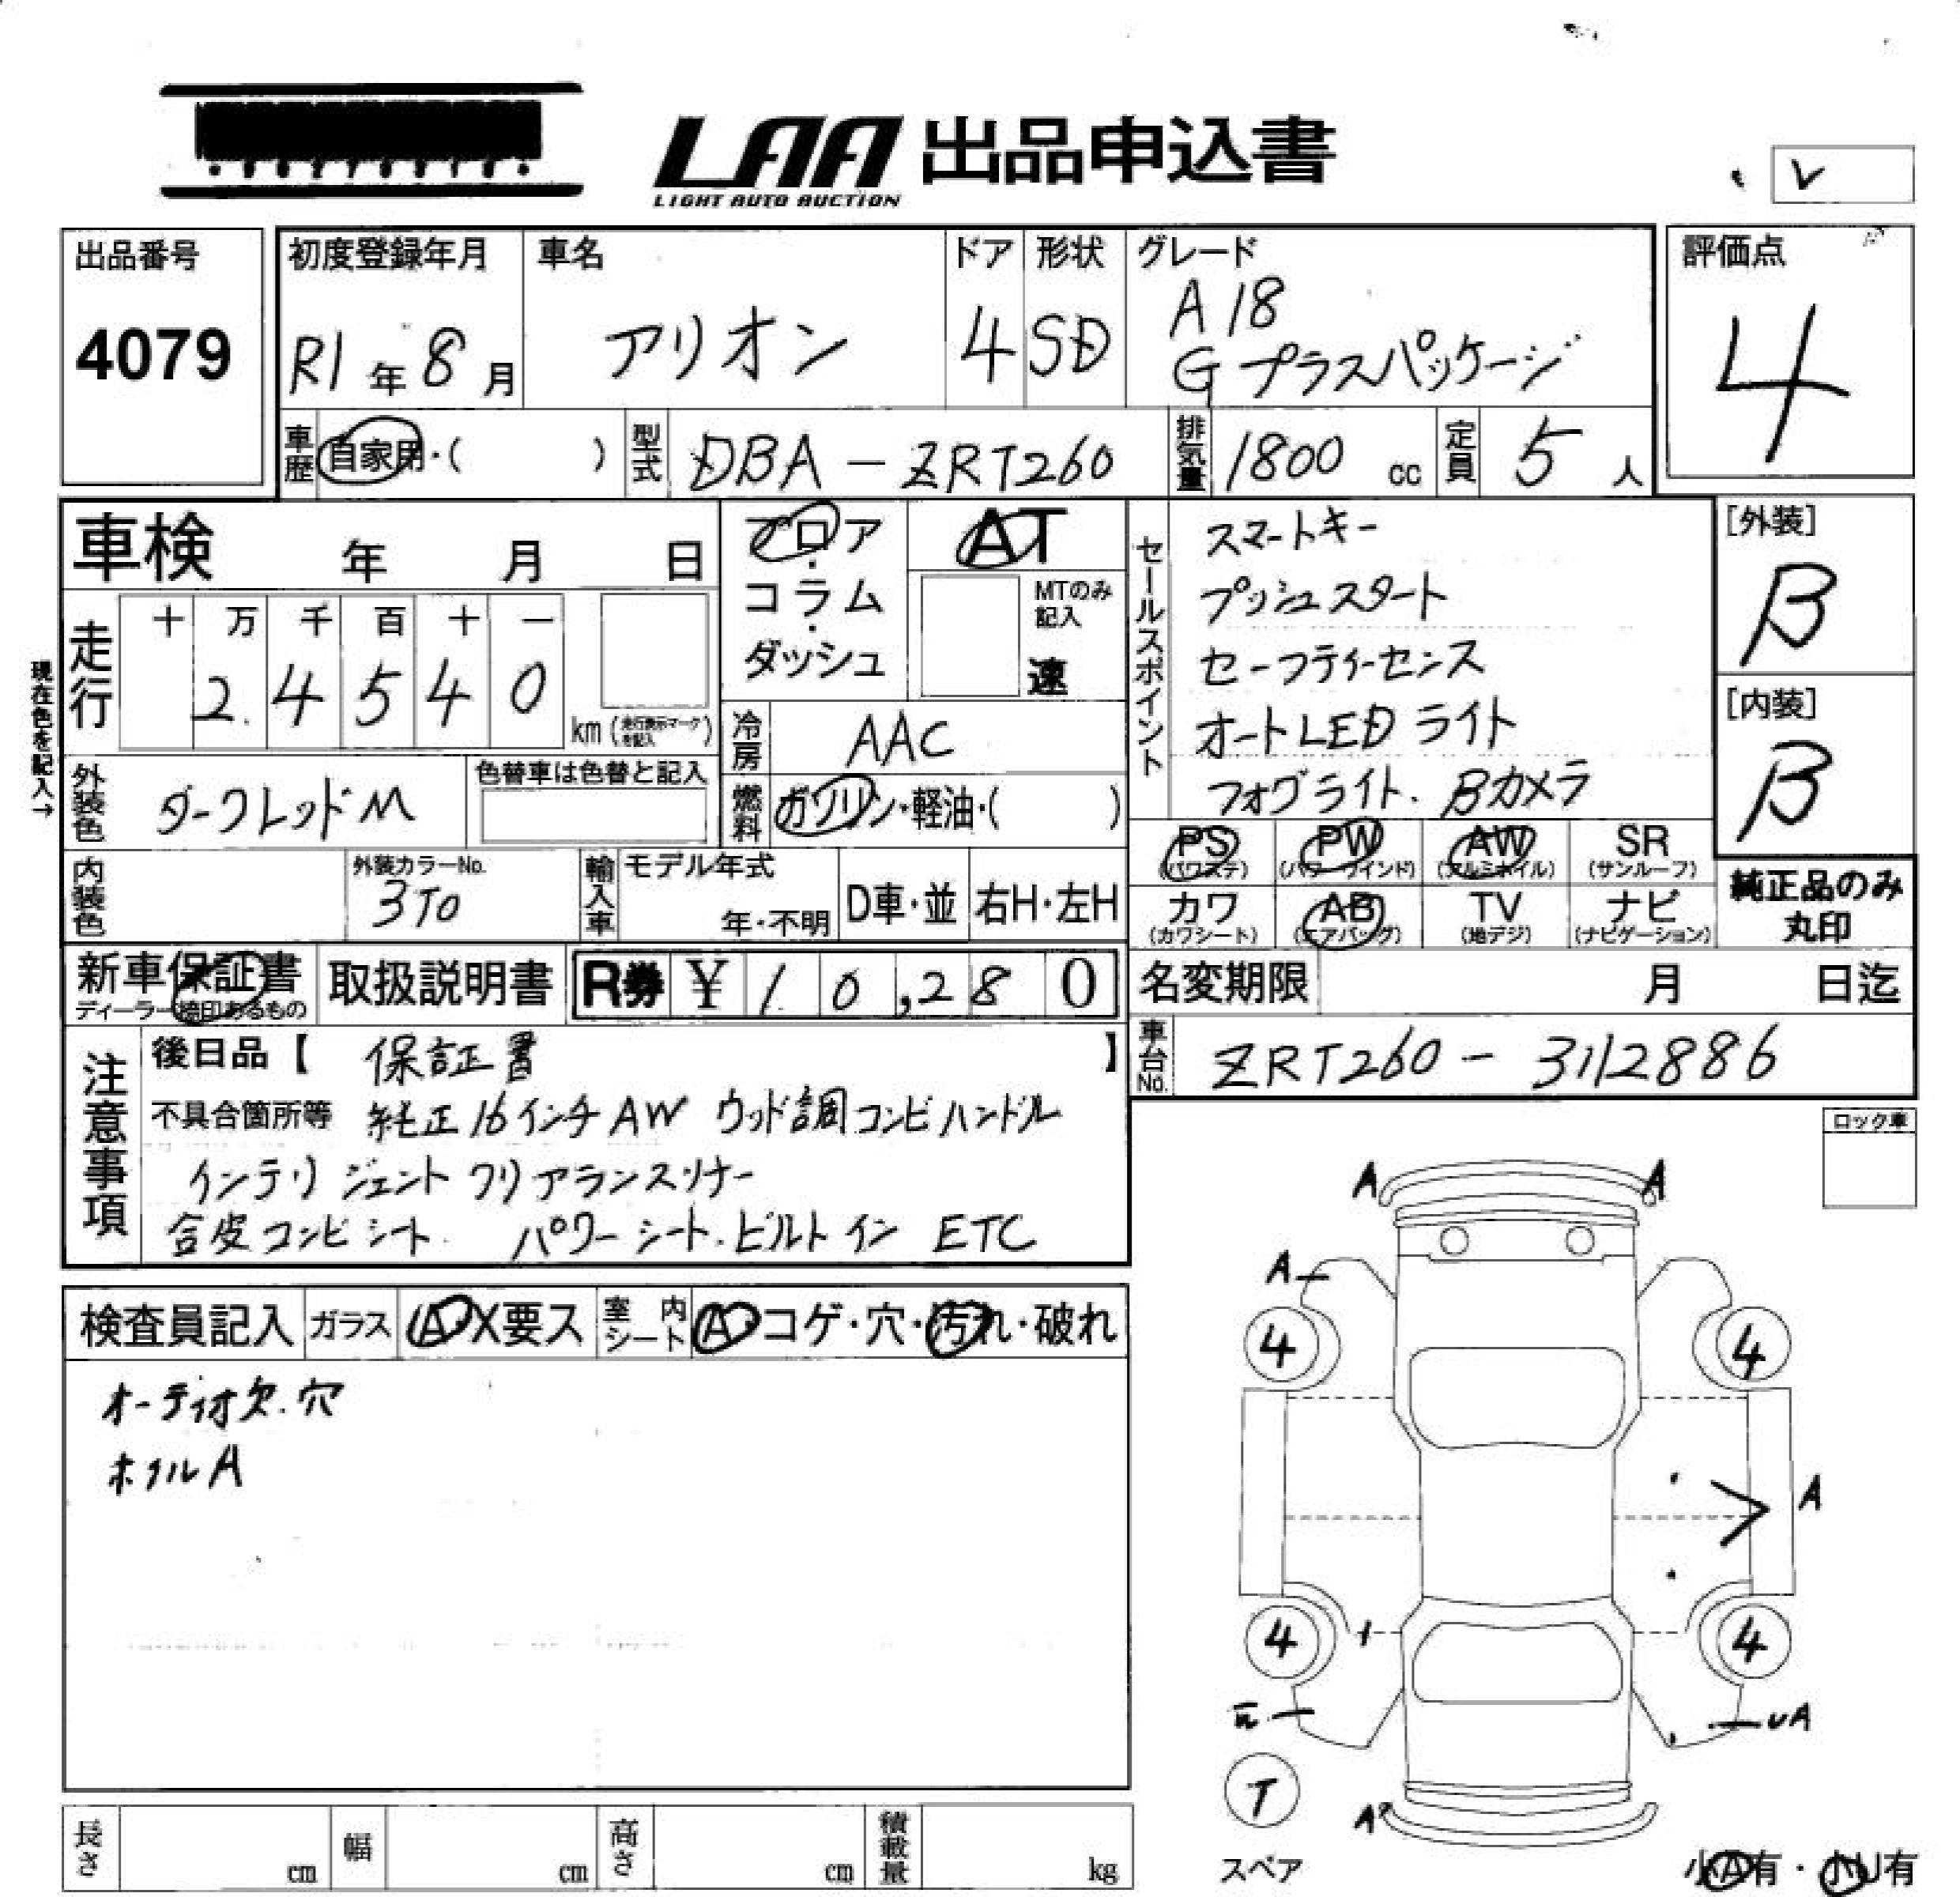 LAA 出品申込書
LIGHT AUTO AUCTION
V
出品番号
4079
初度登録年月
R1 年 8 月
車名
アリオン
ドア
4
形状
SD
グレード
A18
Gプラスパッケージ
評価点
4
車歴 自家用・( )
型式 DBA-ZRT260
排気量 1800 cc
定員 5 人
車検 年 月 日
フロア・コラム・ダッシュ
AT
MTのみ記入
速
セールスポイント
スマートキー
プッシュスタート
セーフティーセンス
オートLEDライト
フォグライト、Bカメラ
[外装]
B
[内装]
B
現在色を記入→
走行
十 万 千 百 十 一
2.4540
km (走行表示マークを記入)
冷房 AAC
外装色 ダークレッドM
色替車は色替と記入
燃料 ガソリン・軽油・( )
PS (パワステ)
PW (パワーウインド)
AW (アルミホイル)
SR (サンルーフ)
カワ (カワシート)
AB (エアバッグ)
TV (地デジ)
ナビ (ナビゲーション)
純正品のみ
丸印
内装色
外装カラーNo.
3T0
輸入車
モデル年式
年・不明
D車・並
右H・左H
新車保証書
ディーラー捺印あるもの
取扱説明書
R券 ¥ 10,280
名変期限 月 日迄
車台No. ZRT260-3112886
注意事項
後日品【 保証書 】
不具合箇所等 純正16インチAW ウッド調コンビハンドル
インテリジェントクリアランスソナー
合皮コンビシート. パワーシート.ビルトイン ETC
ロック車
検査員記入
ガラス A・X要ス
室内シート A・コゲ・穴・汚れ・破れ
オーディオ欠.穴
ホイルA
A A
A
4 4
A
4 4
UA
T
A
スペア
小A有・小U有
長さ cm
幅 cm
高さ cm
積載量 kg